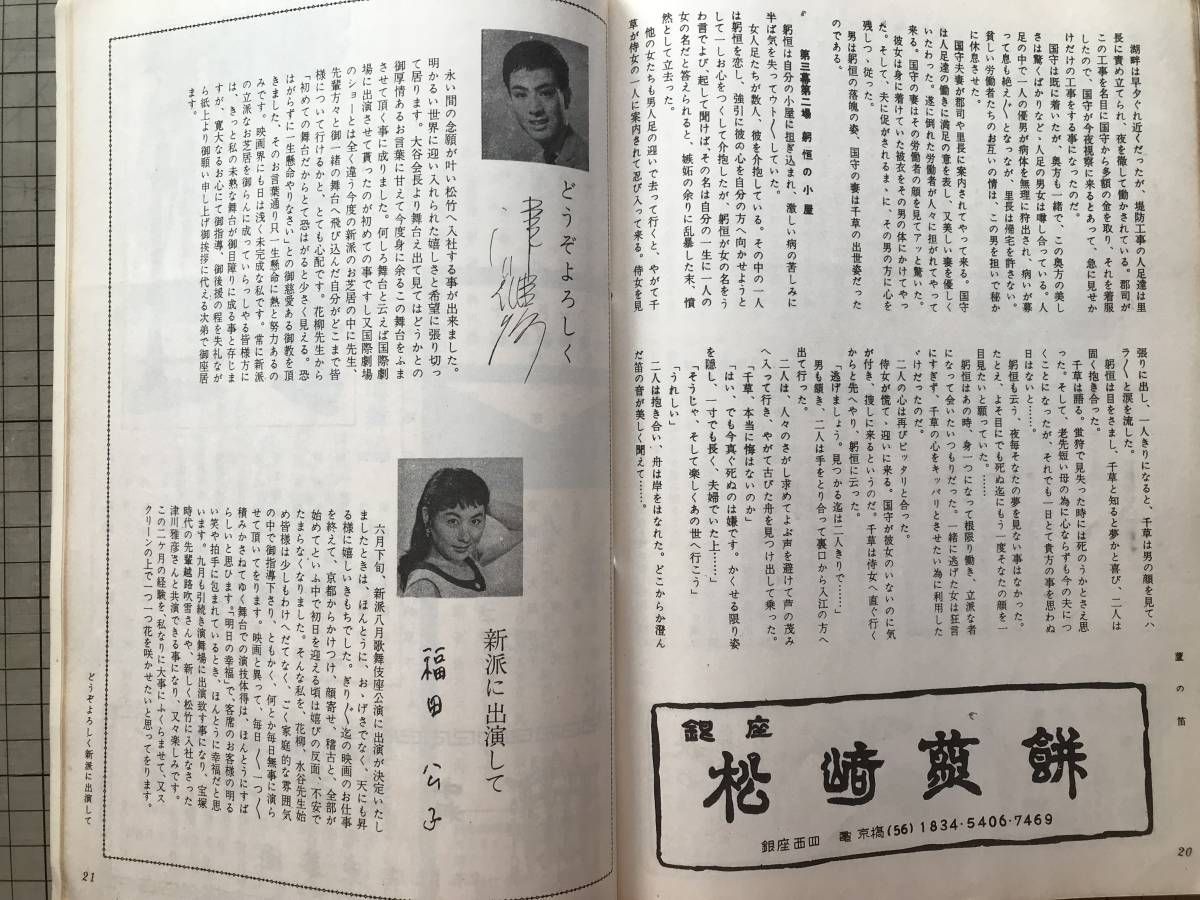 湖畔は早夕ぐれ近くだったが、堤防工事の人足達は里
長に責め立てられ、夜を徹して働かされている。郡司が
この工事を名目に国守から多額の金を取り、それを着服
したので、国守が今夜視察に来るとあって、急に見せか
けだけの工事をする事になったのだ。
国守は既に着いたが、奥方も一緒で、この奥方の美し
さは驚くばかりなど、人足の男女は囁し合っている。人
足の中で一人の優男が病体を無理に狩出され、病いが募
って息も絶え〴〵となったが、里長は帰宅を許さない。
貧しい労働者たちのお互いの情は、この男を担いで秘か
に休息させた。
国守夫妻が郡司や里長に案内されてやって来る。国守
は人足達の働きに満足の意を表し、又美しい妻を優しく
いたわった。遂に倒れた労働者が人々に担がれてやって
来る。国守の妻はその労働者の顔を見てアッと驚いた。
彼女は身に着けていた被衣をその男の体にかけてやっ
た。そして、夫に促がされるまゝに、その男の方に心を
残しつゝ従った。
男は躬恒の落魄の姿、国守の妻は千草の出世姿だった
のである。
第三幕第二場 躬恒の小屋
躬恒は自分の小屋に担ぎ込まれ、激しい病の苦しみに
半ば気を失ってウト〳〵していた。
女人足たちが数人、彼を介抱している。その中の一人
は躬恒を恋し、強引に彼の心を自分の方へ向かせようと
して一しお心をつくして介抱したが、躬恒が女の名をう
わ言でよび、起して聞けば、その名は自分の一生に一人の
女の名だと答えられると、嫉妬の余りに乱暴した末、憤
然として立去った。
他の女たちも男人足の迎いで去って行くと、やがて千
草が侍女の一人に案内されて忍び入って来る。侍女を見
張りに出し、一人きりになると、千草は男の顔を見てハ
ラ〳〵と涙を流した。
躬恒は目をさまし、千草と知ると夢かと喜び、二人は
固く抱き合った。
千草は語る。蛍狩で見失った時には死のうかとさえ思
った。そして、老先短い母の為に心ならずも今の夫につ
くことになったが、それでも一日とて貴方の事を思わぬ
日はないと……。
躬恒も云う、夜毎そなたの夢を見ない事はなかった。
たとえ、よそ目にでも死ぬ迄にもう一度そなたの顔を一
目見たいと願っていた。……
躬恒はあの時、身一つになって根限り働き、立派な者
になって会いたいつもりだった。一緒に逃げた女は狂言
にすぎず、千草の心をキッパリとさせたい為に利用した
ゞけだったのだ。
二人の心は再びピッタリと合った。
侍女が慌てゝ迎いに来る。国守が彼女のいないのに気
が付き、捜しに来るというのだ。千草は侍女へ直ぐ行く
からと先へやり、躬恒に云った。
「逃げましょう。見つかる迄は二人きりで……」
男も頷き、二人は手をとり合って裏口から入江の方へ
出て行った。
二人は、人々のさがし求めてよぶ声を避けて芦の茂み
へ入って行き、やがて古びた舟を見つけ出して乗った。
「千草、本当に悔はないのか」
「はい、でも今真ぐ死ぬのは嫌です。かくせる限り姿
を隠し、一寸でも長く、夫婦でいた上……」
「そうじゃ、そして楽しくあの世へ行こう」
「うれしい」
二人は抱き合い、舟は岸をはなれた。どこからか澄ん
だ笛の音が美しく聞えて……。
蘆の笛
銀座
松崎煎餅
銀座西四 電京橋(56)1834・5406・7469
20
どうぞよろしく
永い間の念願が叶い松竹へ入社する事が出来ました。
明かるい世界に迎い入れられた嬉しさと希望に張り切っ
て居ります。大谷会長より舞台え出て見てはどうかとの
御厚情あるお言葉に甘えて今度身に余るこの舞台をふま
させて頂く事に成りました。何しろ舞台と云えば国際劇
場に出演させて貰ったのが初めての事ですし又国際劇場
のショーとは全く違う今度の新派のお芝居の中に先生、
先輩方々と御一緒の舞台へ飛び込んだ自分がどこまで皆
様について行けるかと、とても心配です。花柳先生から
「初めての舞台だからとて恐はがると少さく見える。恐
はがらずに一生懸命やりなさい」との御慈愛ある御教を頂
きました。そのお言葉通り只一生懸命に熱と努力あるの
みです。映画界にも日は浅く未完成な私です。常に新派
の立派なお芝居を御らんに成っていらっしやる皆様方に
は、きっと私の未熟な舞台が御目障りに成る事と存じま
すが、寛大なるお心にて御指導、御後援の程を失礼なが
ら紙上より御願い申し上げ御挨拶に代える次第で御座居
ます。
新派に出演して
福田公子
六月下旬、新派八月歌舞伎座公演に出演が決定いたし
ましたときは、ほんとうに、おゝげさでなく、天にも昇
る様に嬉しいきもちでした。ぎり〴〵迄の映画のお仕事
を終えて、京都からかけつけ、顔寄せ、稽古と、全部が
始めてといふ中で初日を迎える頃は嬉びの反面、不安で
たまらなくなりました。そんな私を、花柳、水谷先生始
め皆様は少しもわけへだてなく、ごく家庭的な雰囲気
の中で御指導下さり、ともかく、何とか毎日無事に演ら
せて頂いてをります。映画と異って、毎日〳〵、一つ〳〵
積みかさねてゆく舞台での演技体得は、ほんとうにすば
らしいと思ひます。「明日の幸福」で、客席のお客様の明る
い笑や拍手に包まれているとき、ほんとうに幸福だと思
います。九月も引続き演舞場に出演致す事になり、宝塚
時代の先輩越路吹雪さんや、新しく松竹に入社なさった
津川雅彦さんと共演できる事になり、又々楽しみです。
この二ケ月の経験を、私なりに大事にふくらませて、又ス
クリーンの上で一つ一つ花を咲かせたいと思ってをります。
どうぞよろしく 新派に出演して
21